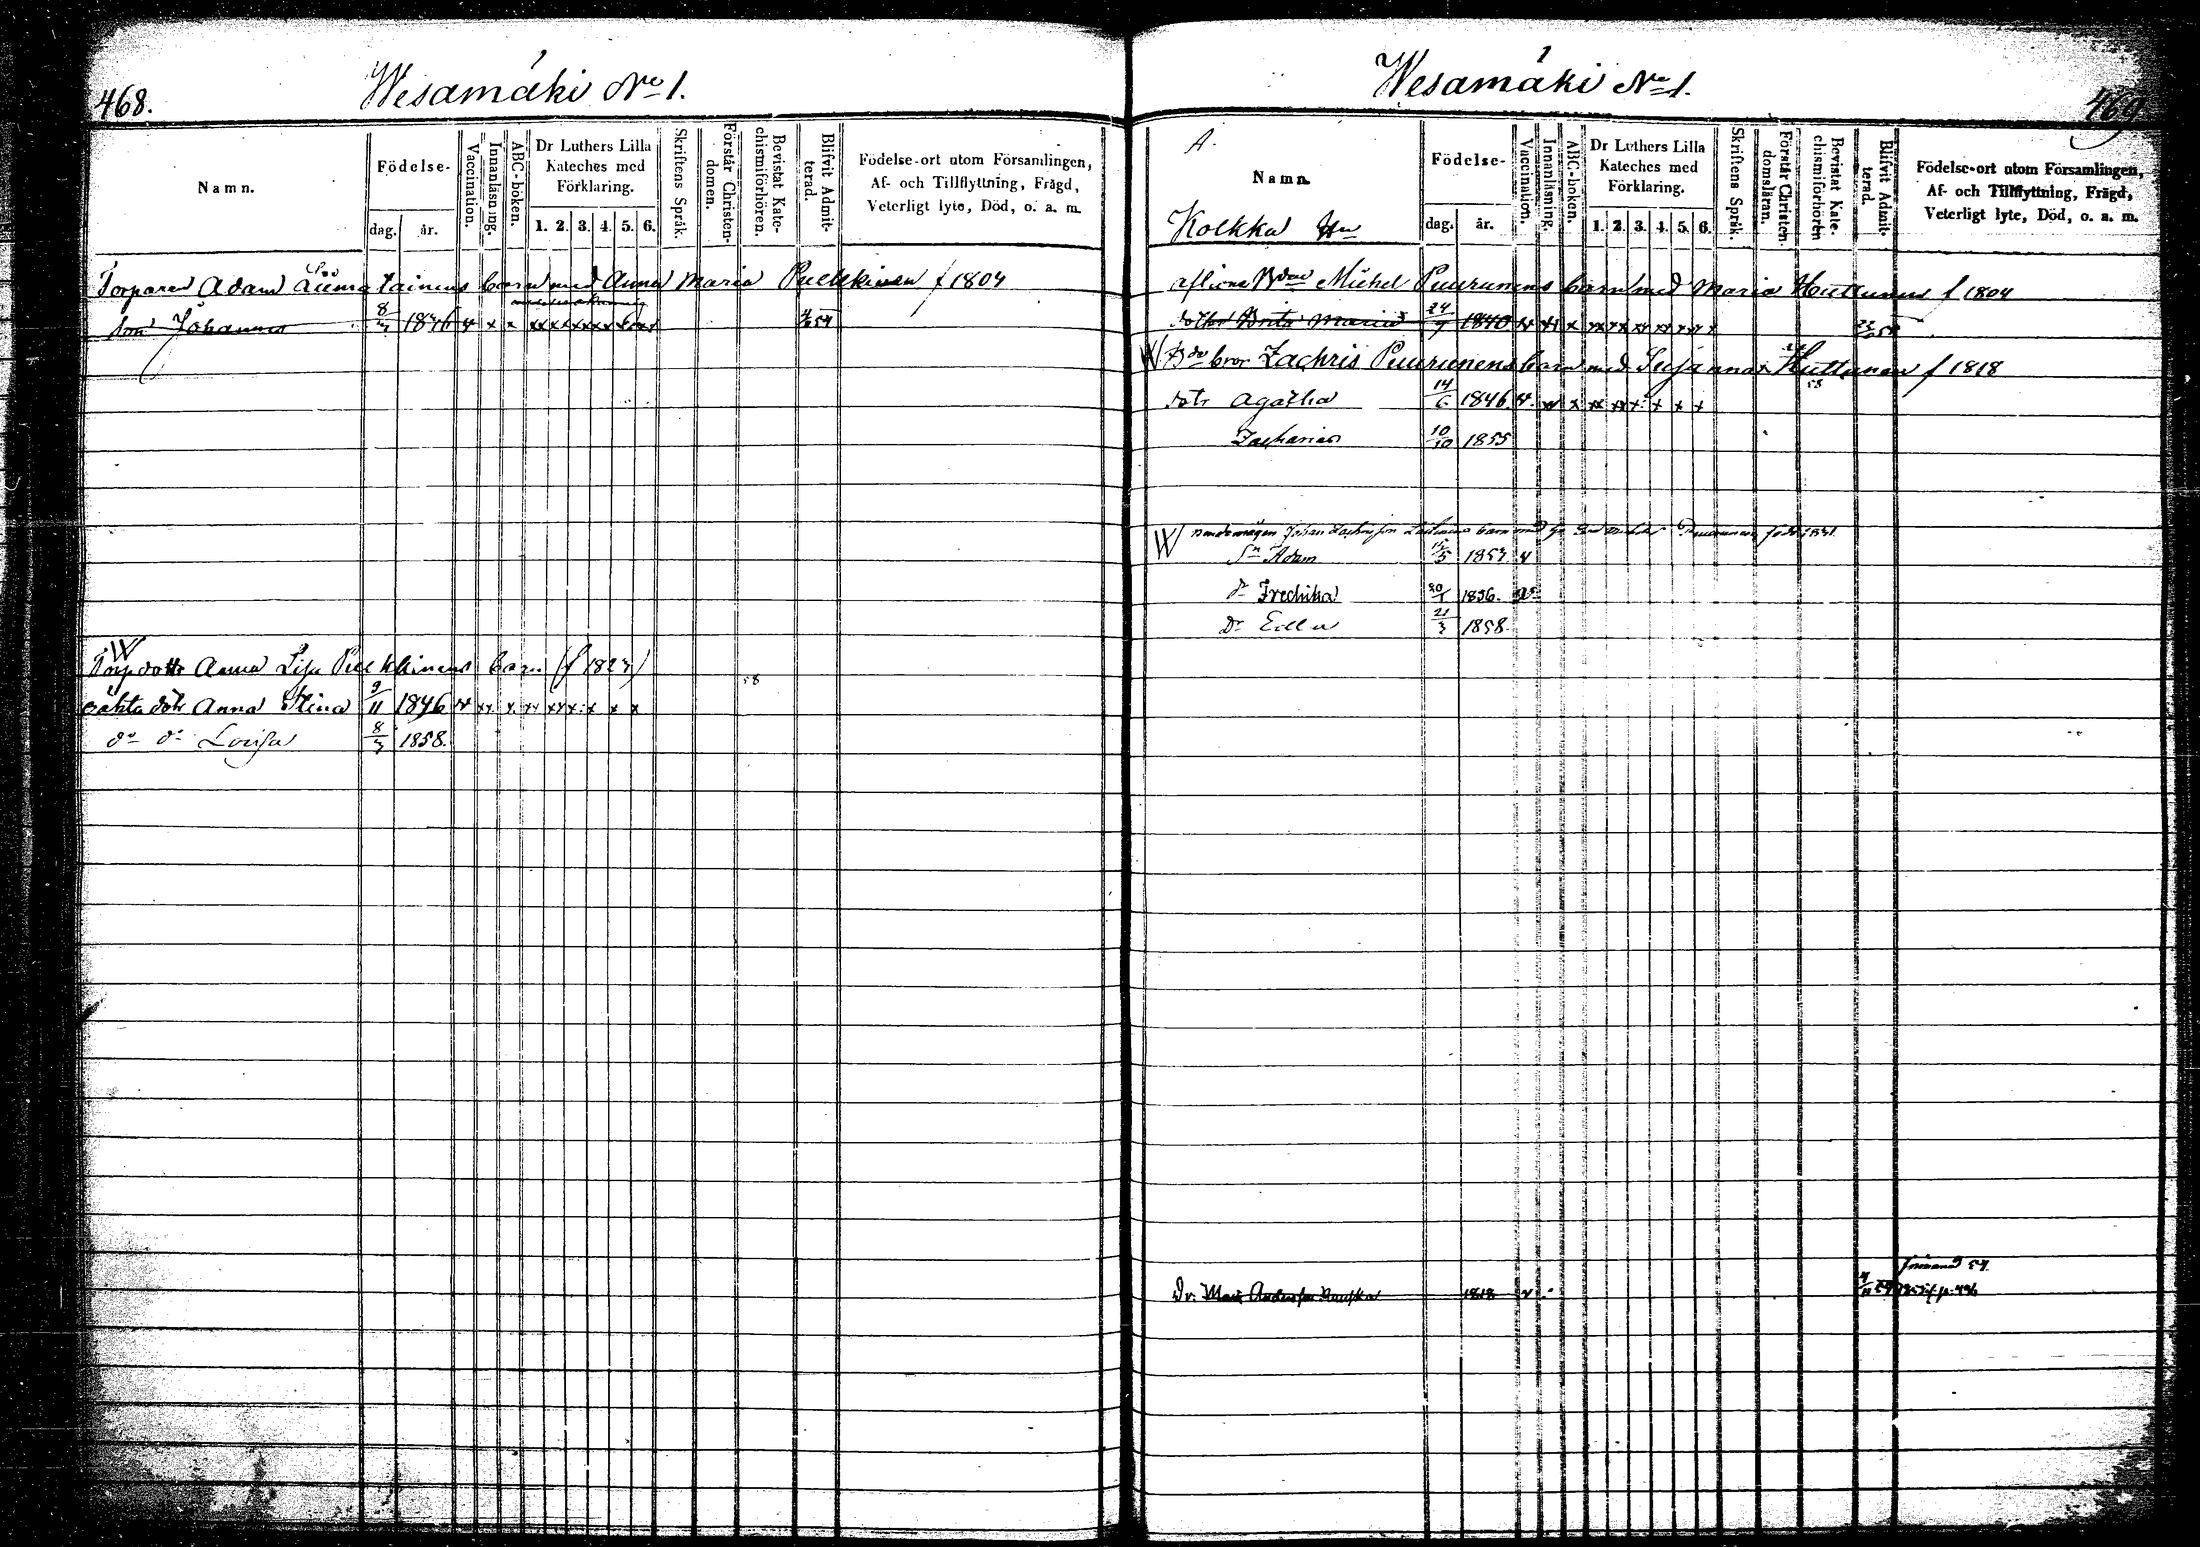 468.
Wesamäki No 1.
Namn.
Födelse-
dag.
år.
Vaccination.
Innanläsning.
ABC-boken.
Dr Luthers Lilla
Kateches med
Förklaring.
1. 2. 3. 4. 5. 6.
Skriftens Språk.
Förstår Christen-
domen.
Bevistat Kate-
chismiförhören.
Blifvit Admit-
terad.
Födelse-ort utom Församlingen,
Af- och Tillflyttning, Frägd,
Veterligt lyte, Död, o. a. m.
Torparen Adam barn med Anna Maria Pulkkinen f 1804
Son Johannes 8/7 1836 v x x 54
Torpdottr Anna Lisa Pulkkinens barn (f 1823)
58
oäkta dotr Anna Stina 9/11 1846 v xx x. xx xx x: x x x
do do Lovisa 8/3 1858.
Wesamäki No 1.
469
A.
Namn.
Kolkka Hn
Födelse-
dag.
år.
Vaccination.
Innanläsning.
ABC-boken.
Dr Luthers Lilla
Kateches med
Förklaring.
1. 2. 3. 4. 5. 6.
Skriftens Språk.
Förstår Christen-
domsläran.
Bevistat Kate-
chismiförhören
Blifvit Admit-
terad.
Födelse-ort utom Församlingen,
Af- och Tillflyttning, Frägd,
Veterligt lyte, Död, o. a. m.
aflidne Bden Michel Puurunens barn med Maria Huttunen f 1804
dotter Brita Maria 24/9 1840
W Bde bror Zachris Puurunens barn med Susanna Huttunen f 1818
58
dotr Agatha 14/6 1846. v. xx x xx xx x: x x x
Zacharias 10/10 1855
W Johan barn med Puurunen född 1831
Sn Adam /5 1853 v
dr Fredrika 20/1 1856.
Dr Ella 21/3 1858.
frinand 54.
Dr. Mats Andersson 1818 v